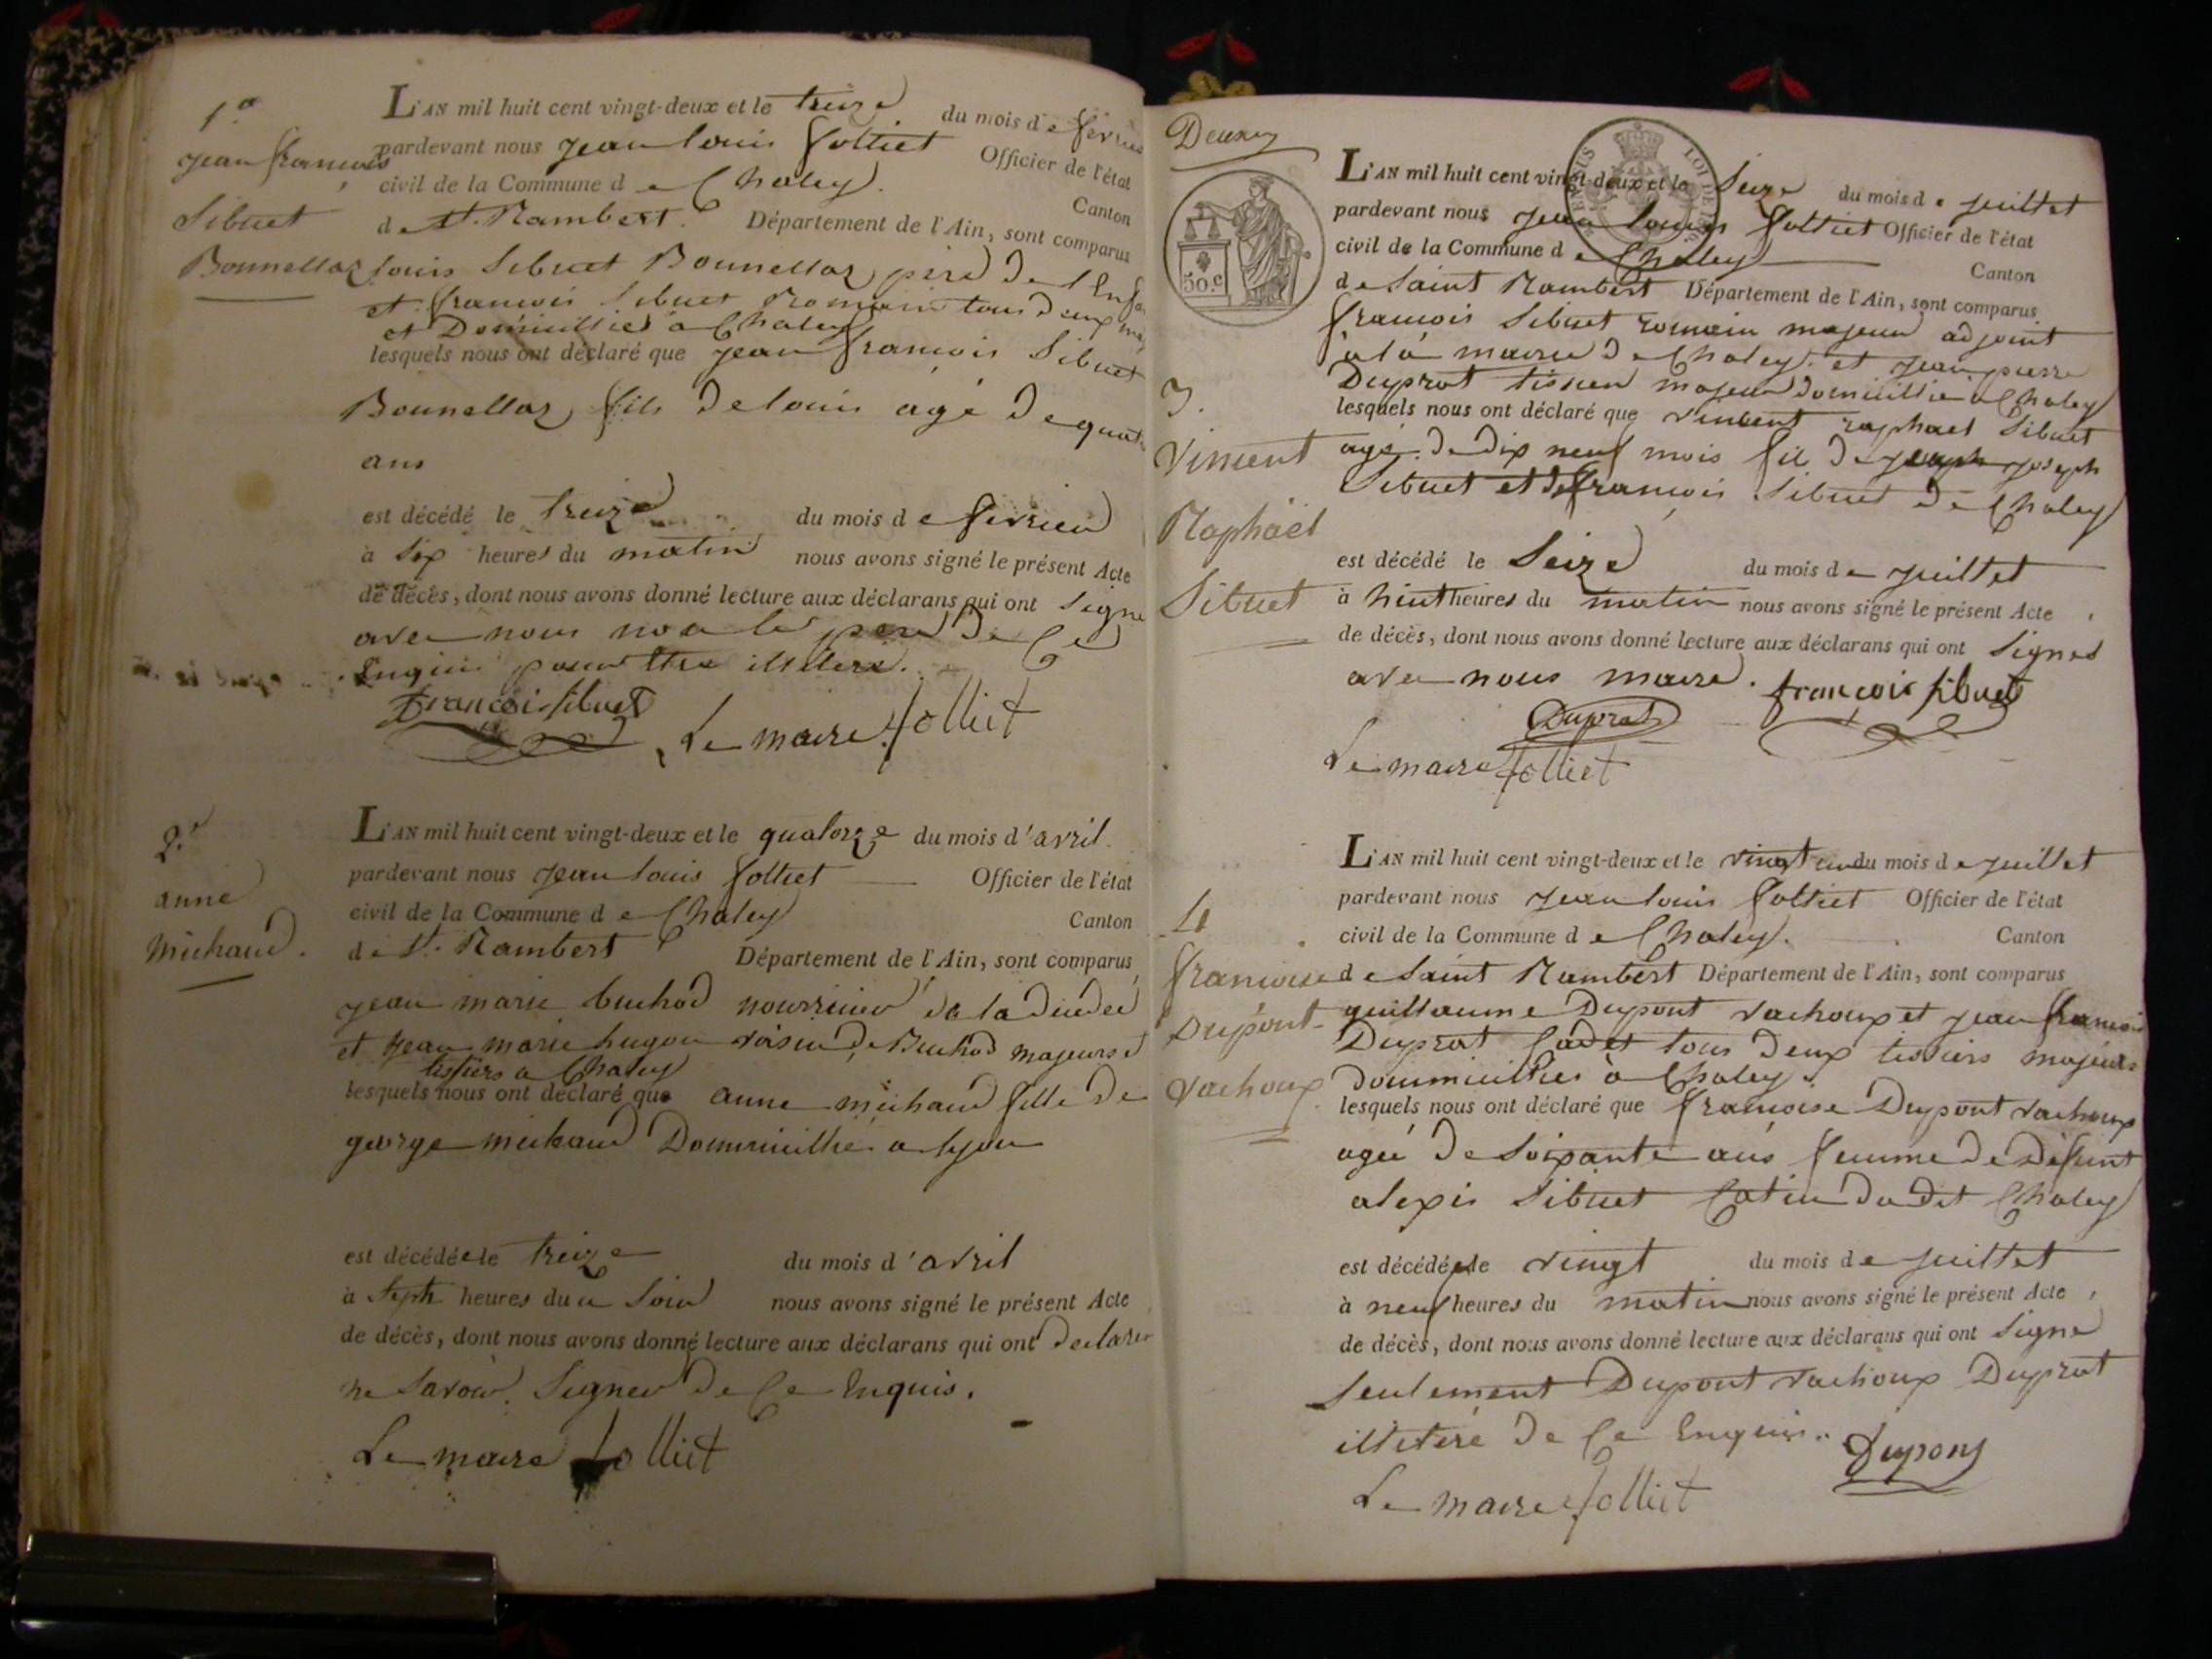 1.o
Jean françois
Sibuet
Bonnellaz
L'AN mil huit cent vingt-deux et le treize du mois de fevrier
pardevant nous Jean Louis Jolliet Officier de l'état
civil de la Commune de Chaley. Canton
de St. Rambert. Département de l'Ain, sont comparus
Louis Sibuet Bonnellaz pere de l'Enfan
et françois Sibuet Romain tous deux ma
et Domicilliés a Chaley
lesquels nous ont déclaré que Jean françois Sibuet
Bonnellaz fils de louis agé de quat
ans
est décédé le treize du mois de fevrier
à Six heures du matin nous avons signé le présent Acte
de décès, dont nous avons donné lecture aux déclarans qui ont signe
avec nous non le pere de Ce
Enquis pour être illetere.
françois sibuet
Le maire Jolliet
2.e
anne
michaud.
L'AN mil huit cent vingt-deux et le quatorze du mois d'avril.
pardevant nous Jean Louis Jolliet Officier de l'état
civil de la Commune de Chaley Canton
de St. Rambert Département de l'Ain, sont comparus
Jean marie buchod nourricier de la décédée
et Jean marie hugon voisin de Buchod majeurs
tissiers a Chaley
lesquels nous ont déclaré que anne michaud fille de
george michaud Dommicillié a lyon
est décédée le treize du mois d'avril
à Septe heures du Soir nous avons signé le présent Acte
de décès, dont nous avons donné lecture aux déclarans qui ont declarer
ne savoir Signer de Ce Enquis.
Le maire Jolliet
Deuxe
50.C
TIMBRE LOI DE
3.
Vincent
Raphaël
Sibuet
L'AN mil huit cent vingt-deux et le Seize du mois de juillet
pardevant nous Jean Louis Jolliet Officier de l'état
civil de la Commune de Chaley Canton
de Saint Rambert Département de l'Ain, sont comparus
françois Sibuet romain majeur adjoint
à la mairie de Chaley. et Jean pierre
Duprat tissieu majeur domicillié a Chaley
lesquels nous ont déclaré que vincent raphael Sibuet
agé de dix neuf mois fil de joseph
Sibuet et de françois Sibuet de Chaley
est décédé le Seize du mois de juillet
à huit heures du matin nous avons signé le présent Acte
de décès, dont nous avons donné lecture aux déclarans qui ont Signés
avec nous maire. françois sibuet
Duprat
Le maire Jolliet
4
francoise
Dupont
vachoux
L'AN mil huit cent vingt-deux et le vingt un du mois de juillet
pardevant nous Jean Louis Jolliet Officier de l'état
civil de la Commune de Chaley. Canton
de Saint Rambert Département de l'Ain, sont comparus
guillaume Dupont vachoux et jean françois
Duprat Cadet tous deux tissiers majeurs
dommicilliés à Chaley.
lesquels nous ont déclaré que francoise Dupont vachoux
ageé de Soixante ans femme de défunt
alexis Sibuet Catin du dit Chaley
est décédée le vingt du mois de juillet
à neuf heures du matin nous avons signé le présent Acte
de décès, dont nous avons donné lecture aux déclarans qui ont Signe
Seulement Dupont vachoux Duprat
illeteré de Ce Enquis.
Dupont
Le maire Jolliet